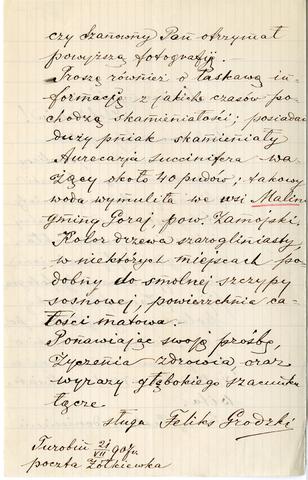 czy Szanowny Pan otrzymał
powyższą fotografję.
Proszę również o łaskawą in-
formację z jakich czasów po-
chodzą skamieniałości; posiadam
duży pniak skamieniały
Aurecarja succinifera wa-
żący około 40 pudów, takowy
woda wymuliła we wsi Malin
gminy Goraj, pow. Zamojski.
Kolor drzewa szarogliniasty,
w niektórych miejscach po-
dobny do smolnej szczypy
sosnowej, powierzchnia ca-
łości matowa.
Ponawiając swoją prośbę,
życzenia zdrowia, oraz
wyrazy głębokiego szacunku
łączę
sługa Feliks Grodzki
Turobin 21/VII 907 r.
poczta Żółkiewka